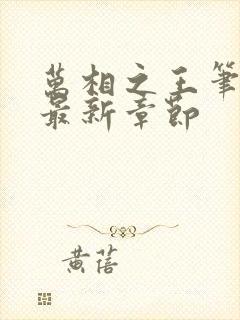 萬相之王筆
最新章節
黄蓓